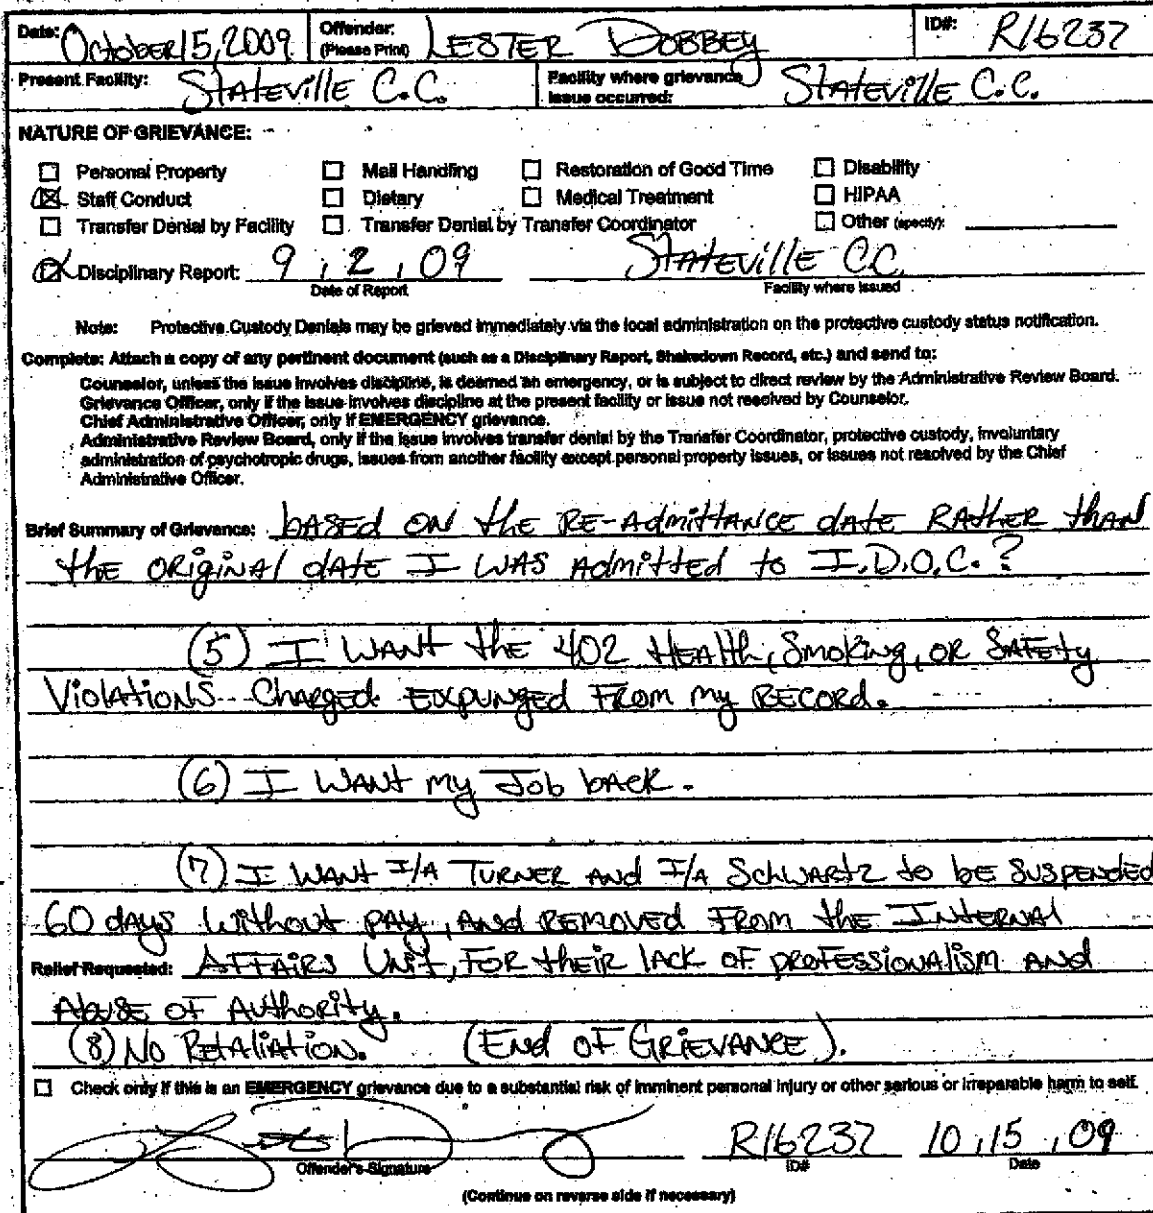 Date: October 15, 2009 Offender: (Please Print) LESTER DOBBEY ID#: R16237
Present Facility: Stateville C.C. Facility where grievance issue occurred: Stateville C.C.
NATURE OF GRIEVANCE:
☐ Personal Property ☐ Mail Handling ☐ Restoration of Good Time ☐ Disability
☒ Staff Conduct ☐ Dietary ☐ Medical Treatment ☐ HIPAA
☐ Transfer Denial by Facility ☐ Transfer Denial by Transfer Coordinator ☐ Other (specify):
☒ Disciplinary Report: 9 / 2 / 09 Stateville C.C.
Date of Report Facility where issued
Note: Protective Custody Denials may be grieved immediately via the local administration on the protective custody status notification.
Complete: Attach a copy of any pertinent document (such as a Disciplinary Report, Shakedown Record, etc.) and send to:
Counselor, unless the issue involves discipline, is deemed an emergency, or is subject to direct review by the Administrative Review Board.
Grievance Officer, only if the issue involves discipline at the present facility or issue not resolved by Counselor.
Chief Administrative Officer, only if EMERGENCY grievance.
Administrative Review Board, only if the issue involves transfer denial by the Transfer Coordinator, protective custody, involuntary
administration of psychotropic drugs, issues from another facility except personal property issues, or issues not resolved by the Chief
Administrative Officer.
Brief Summary of Grievance: based on the re-admittance date rather than
the original date I was admitted to I.D.O.C.?
(5) I want the 402 Health, Smoking, or Safety
Violations Charged expunged from my record.
(6) I want my Job back.
(7) I want I/A Turner and I/A Schwartz to be suspended
60 days without pay, and removed from the Internal
Relief Requested: Affairs Unit, for their lack of professionalism and
Abuse of Authority.
(8) No Retaliation. (End of Grievance).
☐ Check only if this is an EMERGENCY grievance due to a substantial risk of imminent personal injury or other serious or irreparable harm to self.
R16237 10 / 15 / 09
Offender's Signature ID# Date
(Continue on reverse side if necessary)